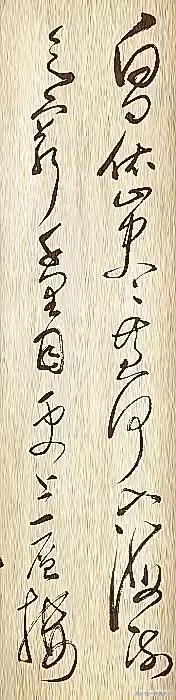 白日依山尽黄河入海流
欲穷千里目更上一层楼